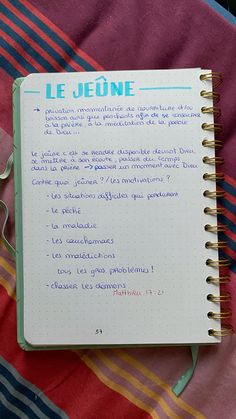 LE JEÛNE
→ privation momentanée de nourriture et/ou
boisson ainsi que penchants afin de se consacrer
à la prière, à la méditation de la parole
de Dieu...
Le jeûne c'est se rendre disponible devant Dieu
se mettre à son écoute, passer du temps
dans la prière → passer un moment avec Dieu
Contre quoi jeûner ? / les motivations ?
- les situations difficiles qui perdurent
- le péché
- la maladie
- les cauchemars
- les malédictions
tous les gros problèmes !
- chasser les démons
Matthieu 17 : 21
37